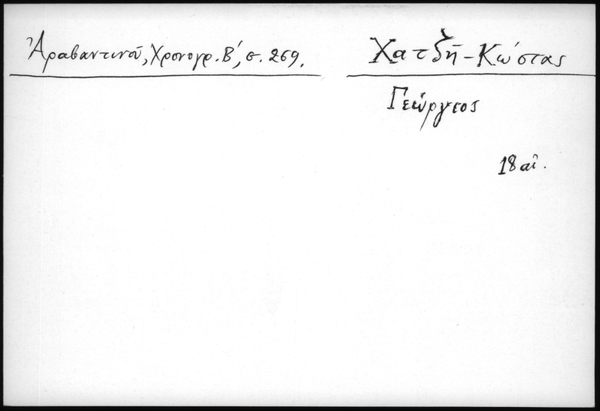 Ἀραβαντινοῦ, Χρονογρ. Β', σ. 269.
Χατζῆ-Κώστας
Γεώργιος
18 αἰ.